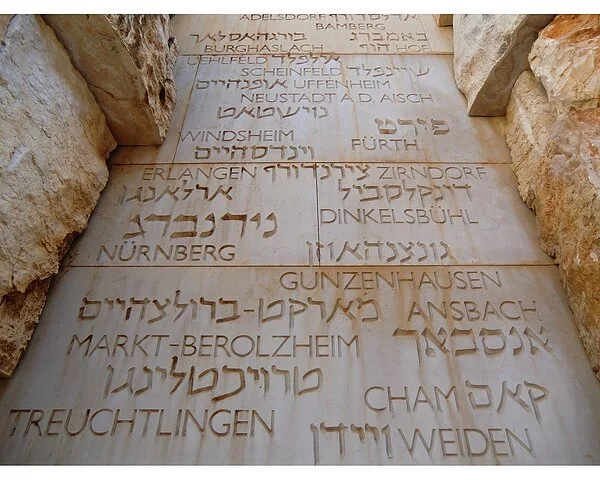 ADELSDORF אדלסדורף
BAMBERG
בורגהאסלאך באמברג
BURGHASLACH הוף HOF
UEHLFELD אילפלד
SCHEINFELD שיינפלד
אופנהיים UFFENHEIM
NEUSTADT A.D. AISCH
נוישטאט
WINDSHEIM וינדסהיים פירט
FÜRTH
ERLANGEN צירנדורף ZIRNDORF
ארלאנגן דינקלסביל
נירנברג DINKELSBÜHL
NÜRNBERG גונצנהאוזן
GUNZENHAUSEN
מארקט-ברולצהיים ANSBACH
MARKT-BEROLZHEIM אנסבאך
טרויכטלינגן
CHAM קאם
TREUCHTLINGEN
ויידן WEIDEN